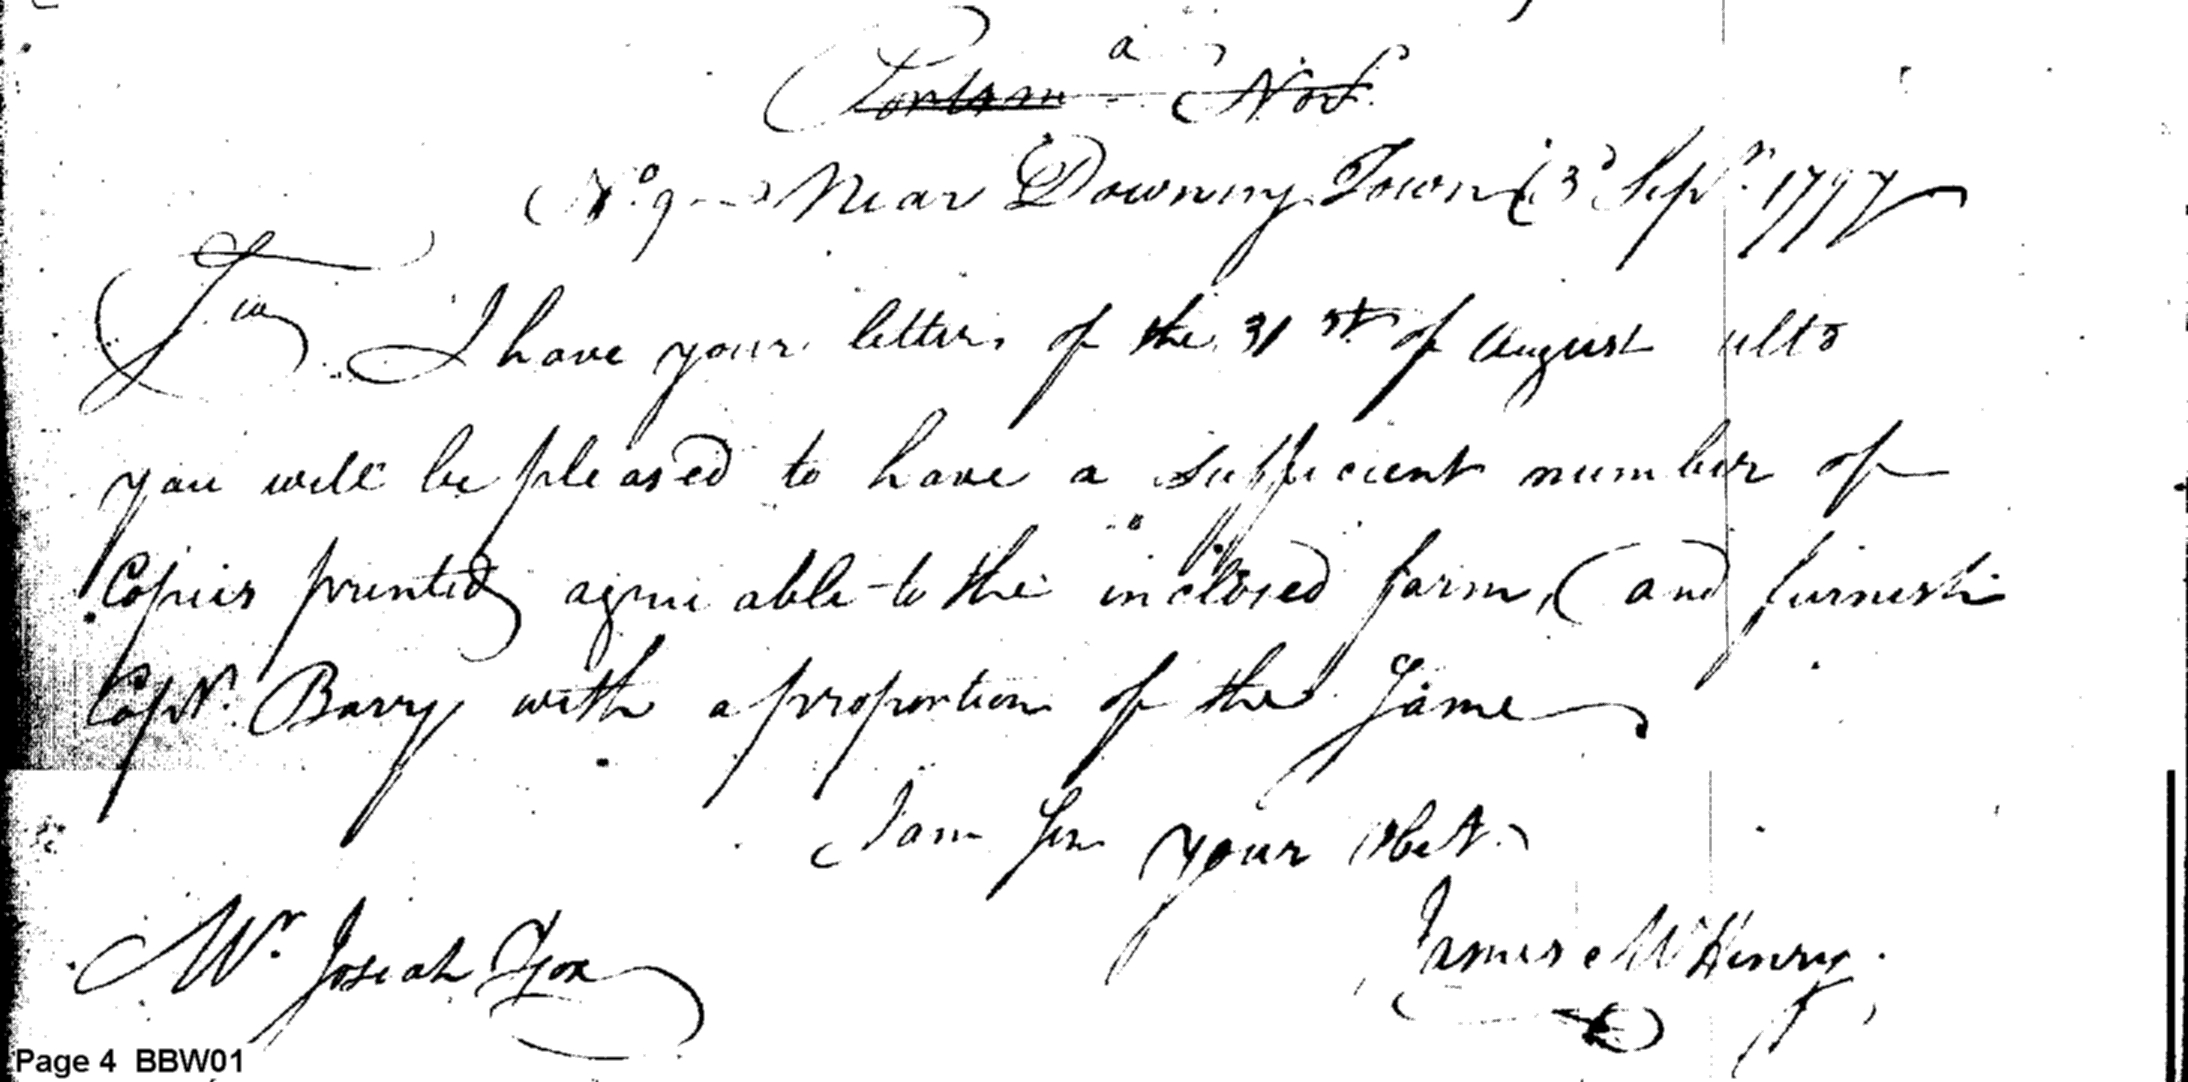 a
No. 9 Near Downing Town 3d Sepr. 1797
Sir I have your letter of the 31st of August ulto
you will be pleased to have a sufficient number of
Copies printed agreeable to the inclosed form, and furnish
Capt. Barry with a proportion of the Same
I am Sir your Obet.
Mr. Josiah Fox
James McHenry.
Page 4 BBW01